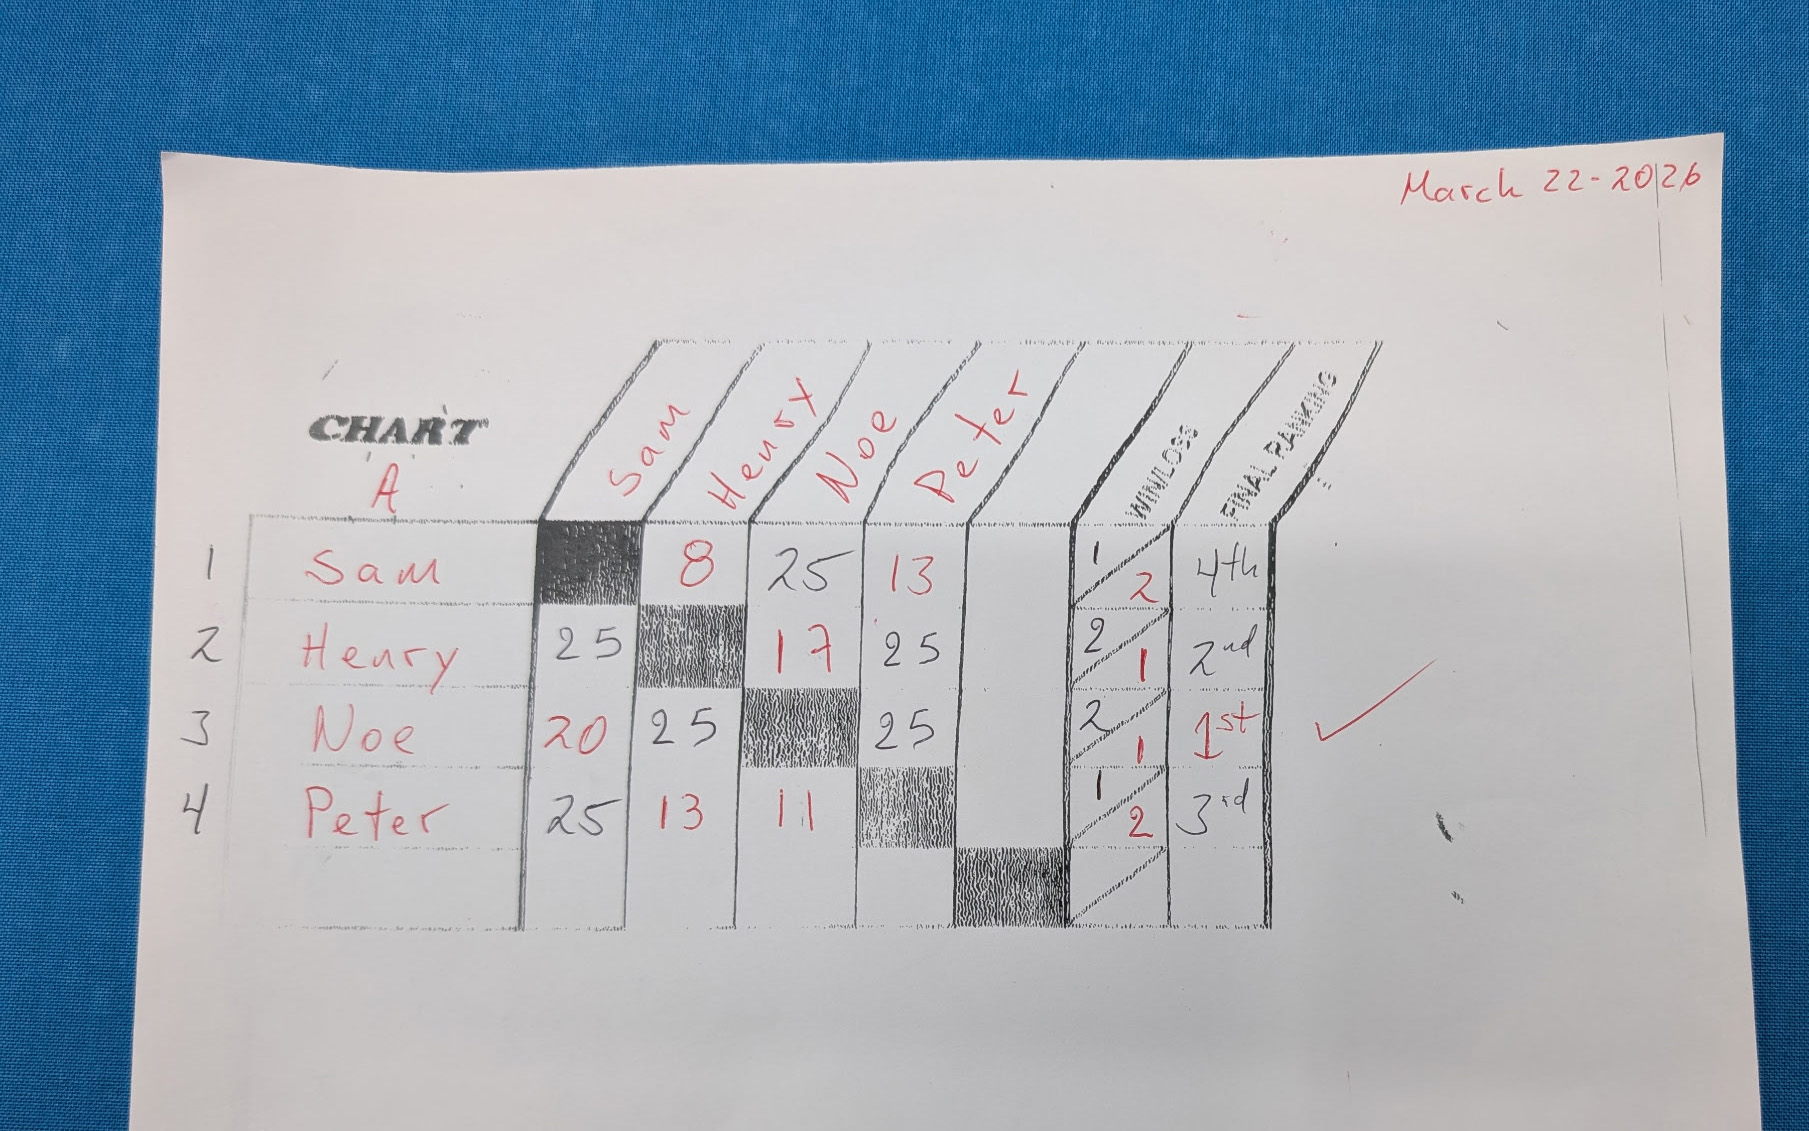 March 22-2026
CHART
A
Sam Henry Noe Peter WIN/LOSS FINAL RANKING
1 Sam 8 25 13 1 2 4th
2 Henry 25 17 25 2 1 2nd
3 Noe 20 25 25 2 1 1st
4 Peter 25 13 11 1 2 3rd